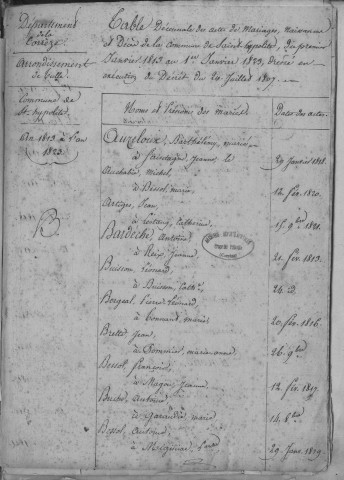 Département
de la
Corrèze
Arrondissement
de Tulle
Commune de
St. hypolite
An 1813 à l'an
1823
Table Décennale des actes de Mariages, Naissances
et Décès de la commune de Saint hypolite, Du premier
Janvier 1813 au 1er Janvier 1823, dressé en
exécution du Décret du 20 Juillet 1807
Noms et Prénoms des mariés
Dates des actes
Auzeloux, Barthélemy, marié
à Jeanne
29 Janvier 1818
Michel
à Bessol, marie
12 fév. 1820
Artiges, Jean
à Catherine
15. 9bre 1821
Bardèche, Antoine
à Jeanne
21. fév. 1813
Buisson, Léonard
à Buisson, Cathe.
26. d.
Borgeal, Pierre Léonard
à marie
20. fév. 1816
Brette Jean
à Pommier, marianne
26. 9bre
Bessol, françois
à Magon, Jeanne
12. fév. 1817
Antoine
à marie
14. 8bre
Bessol, Antoine
à
29. Janv. 1819